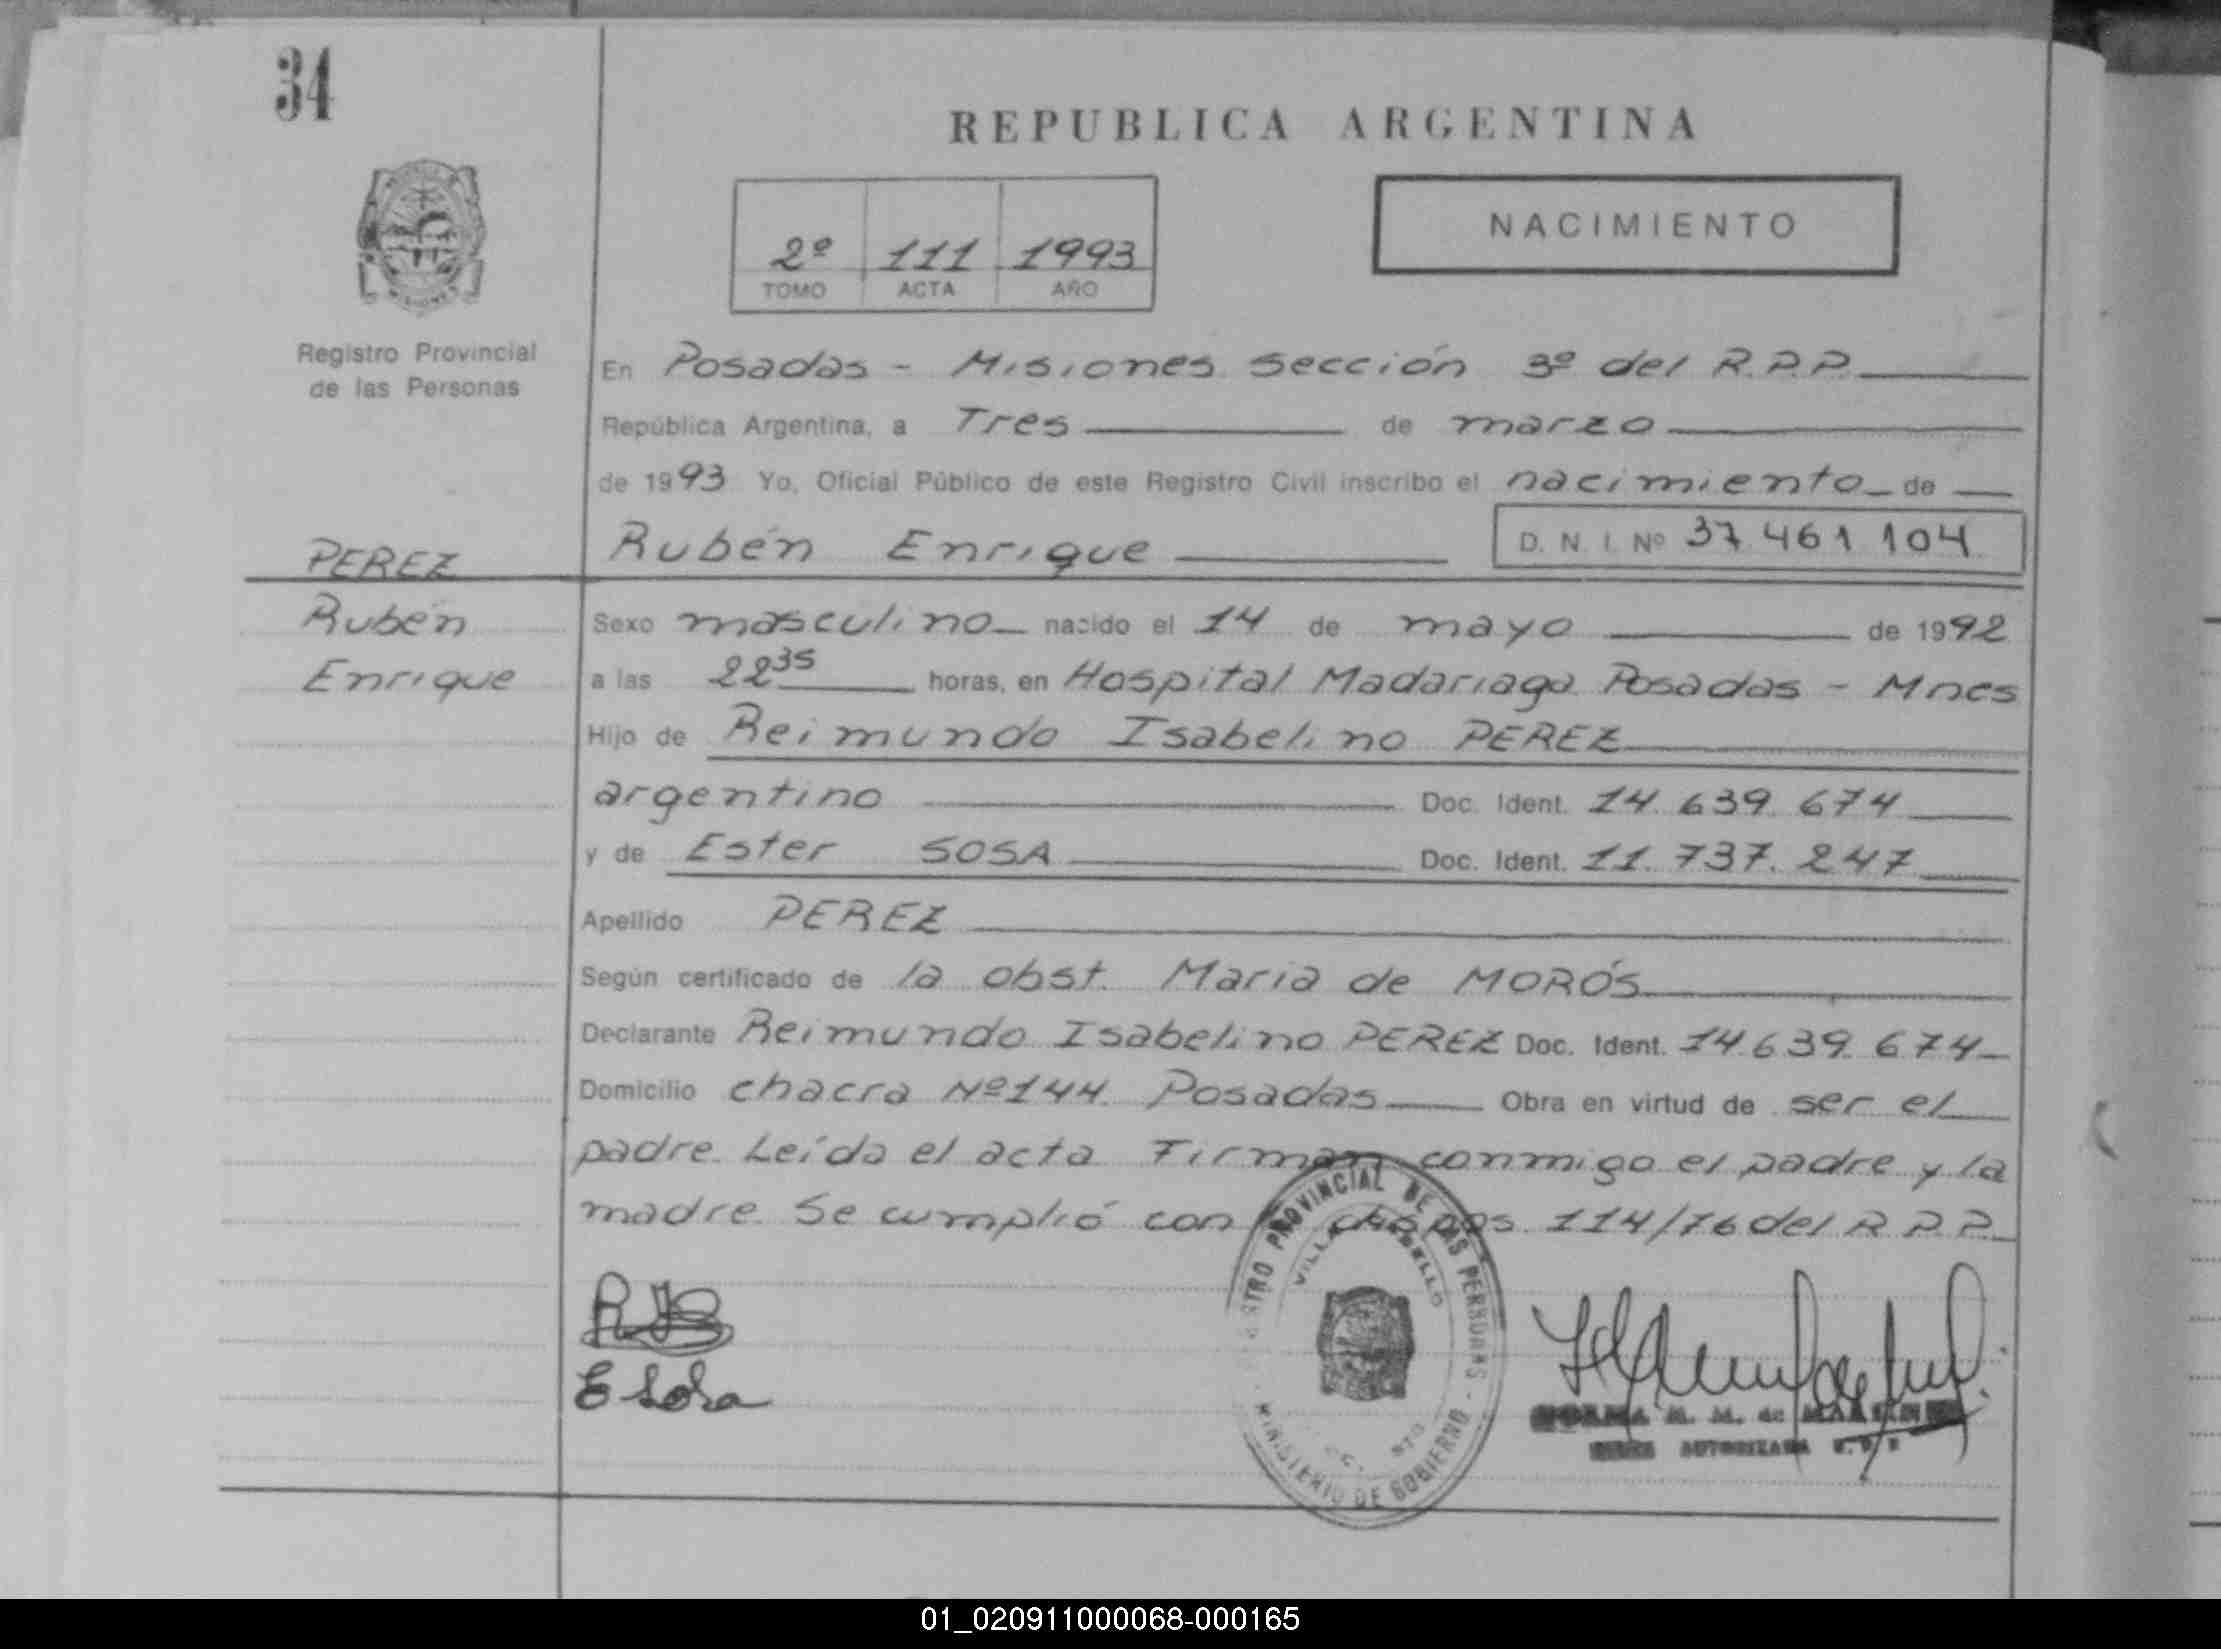 34
REPUBLICA ARGENTINA
NACIMIENTO
2º 111 1993
TOMO ACTA AÑO
Registro Provincial
de las Personas
En Posadas - Misiones Sección 3º del R.P.P.
República Argentina, a Tres de marzo
de 1993 Yo, Oficial Público de este Registro Civil inscribo el nacimiento de
PEREZ
Rubén Enrique
D. N. I. Nº 37 461 104
Rubén
Enrique
Sexo masculino nacido el 14 de mayo de 1992
a las 22 35 horas, en Hospital Madariaga Posadas - Mnes
Hijo de Reimundo Isabelino PEREZ
argentino Doc. Ident. 14.639.674
y de Ester SOSA Doc. Ident. 11.737.247
Apellido PEREZ
Según certificado de la obst. Maria de MORÓS
Declarante Reimundo Isabelino PEREZ Doc. Ident. 14.639.674
Domicilio chacra Nº144. Posadas Obra en virtud de ser el
padre. Leída el acta Firman conmigo el padre y la
madre. Se cumplió con 114/76 del R.P.P.
REGISTRO PROVINCIAL DE LAS PERSONAS
VILLA
MINISTERIO DE GOBIERNO
E Sosa
NORMA M. M. de
AUTORIZADA
01_020911000068-000165